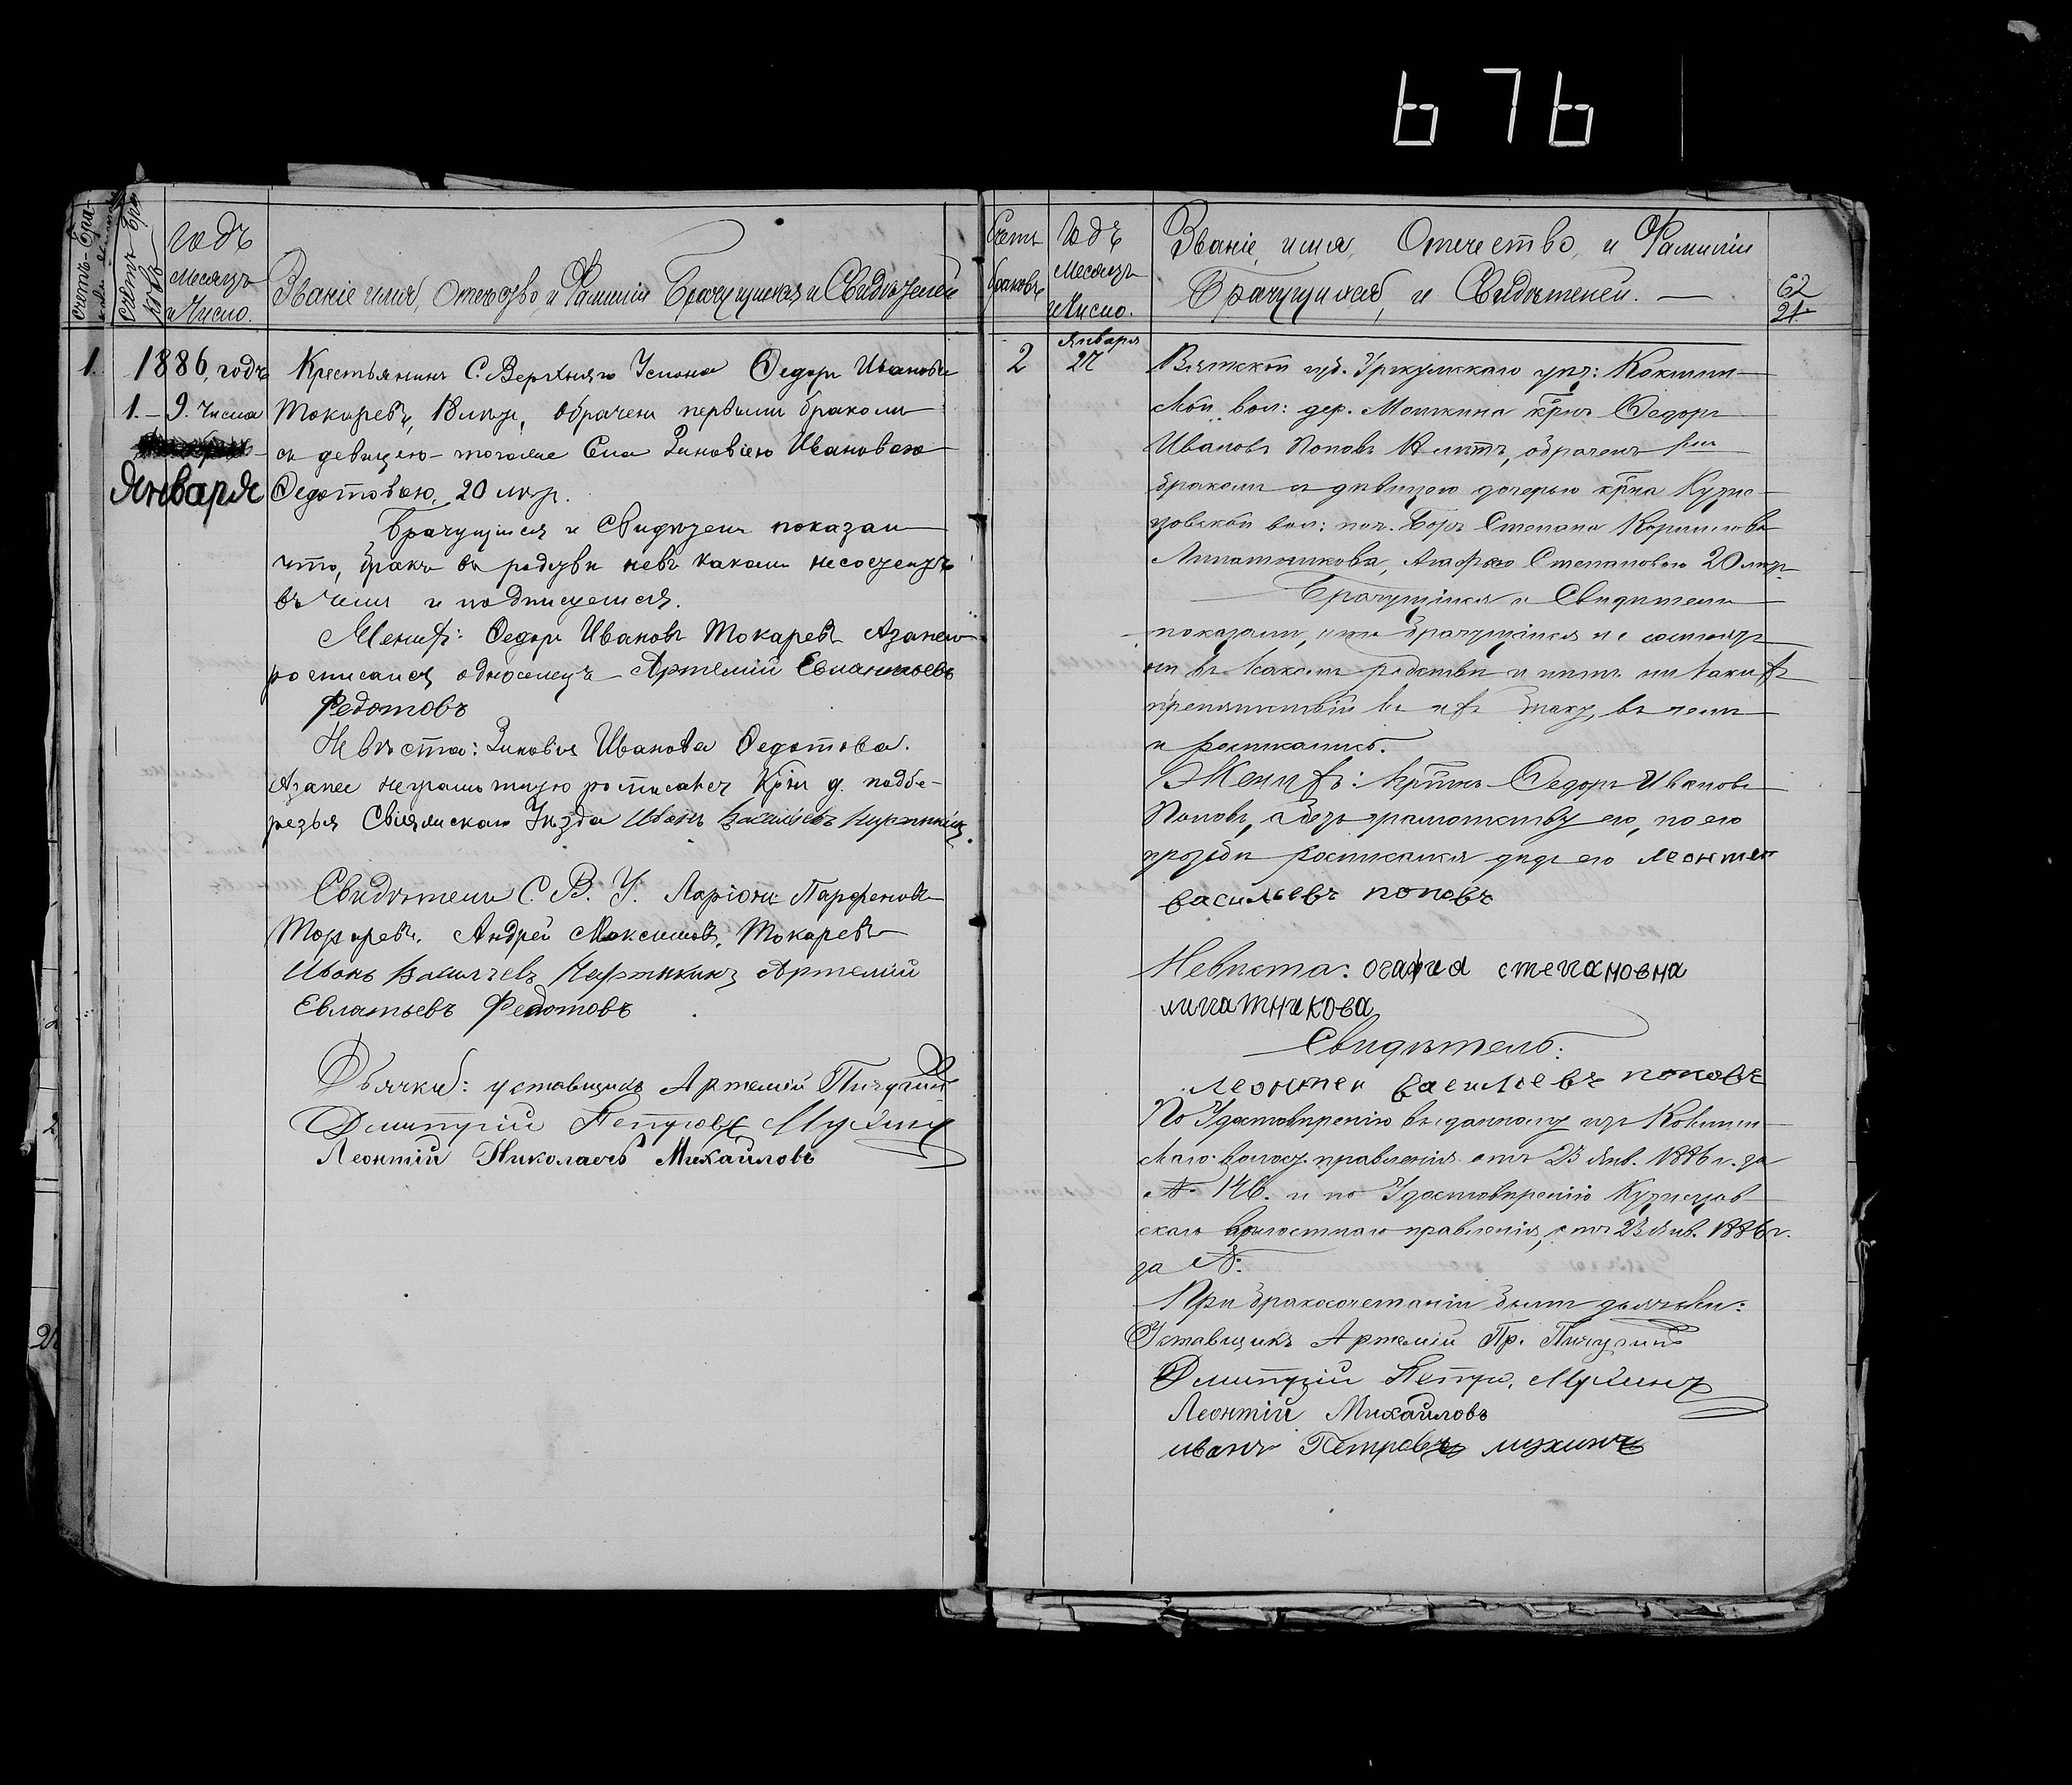 676
Счетъ бра-
Счетъ бра
ковъ
годъ
месяцъ
и Число.
Званіе имя, отечество, и Фамиліи Брачущихся и Свидѣтелей
1.
1886, годъ
1. – 9. числа
Января
Крестьянинъ С. Верхняго Услона Федоръ Ивановъ
Токаревъ, обрачен первымъ бракомъ
съ девицею тогоже Села Зиновіею Ивановою
Федотовою, 20 лѣтъ.
Брачущіеся и Свидѣтели показали
что, бракъ въ родстве невъ какомъ несостоитъ
въ чемъ и подписуемся.
Женихъ: Федоръ Ивановъ Токаревъ Азанего
росписался односелецъ Артемій Евлантьевъ
Федотовъ
Невѣста: Зиновія Иванова Федотова.
Азанее неграмотную росписался Крн д. подбе-
резья Свіяжскаго Уѣзда Иванъ Васильевъ
Свидѣтели С. В. У. Ларіонъ Парфеновъ
Токаревъ. Андрей Максимовъ, Токаревъ
Иванъ Васильевъ Артемій
Евлантьевъ Федотовъ
Дьячки: уставщикъ Артемій Пичугинъ
Дмитрій Петровъ Мухинъ
Леонтій Николаевъ Михайловъ
Счетъ
браковъ
Годъ
Месяцъ
и Число.
Званіе, имя, Отечество, и Фамиліи
Брачущихся, и Свидѣтелей. —
62
21.
2
Января
27
Вятской губ. Уржумскаго уѣз: Кокшин-
ской вол: дер. Мошкина крнъ Федоръ
Ивановъ Поповъ лѣтъ, обраченъ 1мъ
бракомъ съ дѣвицею дочерью крна Кузне-
цовской вол: поч. Боръ Степана Корнилова
Липатникова, Агафьею Степановою 20 лѣтъ
Брачущіися и Свидѣтели
показали, что брачущіися не состоятъ
ни въ какомъ родствѣ и нѣтъ ни какихъ
препятствій къ ихъ браку, въ чемъ
и росписались.
Женихъ: Крнъ Федоръ Ивановъ
Поповъ, а безграмотству его, по его
прозьбѣ росписался дядя его леонтеи
васильевъ поповъ
Невѣста: огафия степановна
липатникова
Свидѣтель:
леонтеи васильевъ поповъ
По Удостовѣренію выданному изъ Кокшин-
скаго: волост. правленія отъ 23 Янв. 1886 г. за
№ 146. и по Удостовѣренію Кузнецов-
скаго волостнаго правленія, отъ 23 Янв. 1886 г.
за №:
При бракосочетаніи были дьячьки:
Уставщикъ Артемій Пр. Пичугинъ
Дмитрій Петро. Мухинъ
Леонтій Михайловъ
иванъ Петровъ мухинъ